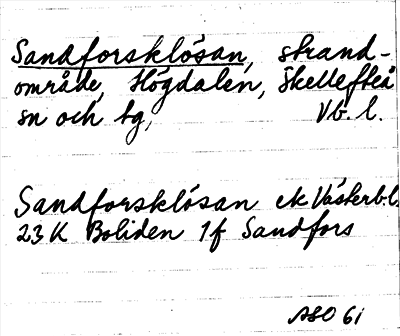 Sandforsklösan, strand-
område, Högdalen, Skellefteå
sn och tg, Vb. l.
Sandforsklösan ek Västerb.l.
23 K Boliden 1f Sandfors
ASO 61